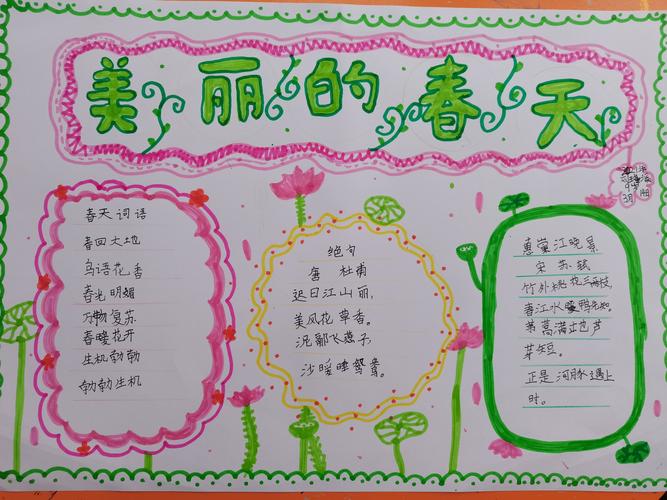 美丽的春天
春天词语
春回大地
鸟语花香
春光明媚
万物复苏
春暖花开
生机勃勃
勃勃生机
绝句
唐 杜甫
迟日江山丽,
美风花草香。
泥鄙飞燕子
沙暖睡鸳鸯。
惠崇江晓景
宋 苏轼
竹外桃花三两枝
春江水暖鸭先知。
蒿满地芦
芽短。
正是河豚遇上
时。